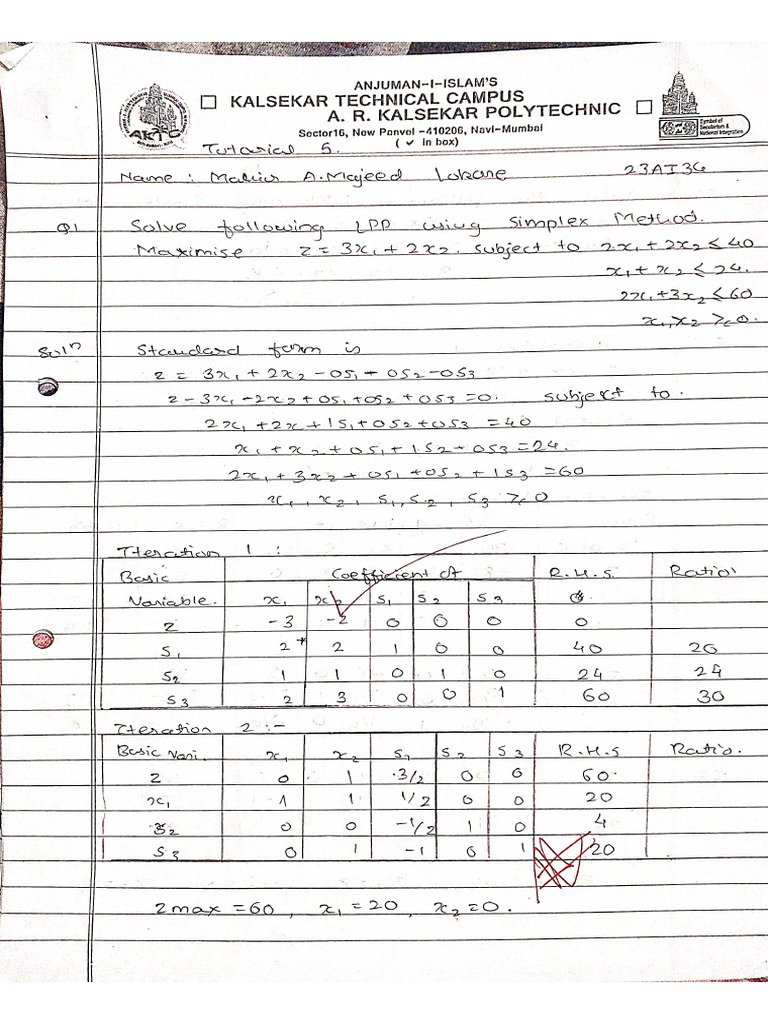 ANJUMAN-I-ISLAM'S
KALSEKAR TECHNICAL CAMPUS
A. R. KALSEKAR POLYTECHNIC
Sector16, New Panvel -410206, Navi-Mumbai
( ✓ in box)
AKTC
Symbol of
Secularism &
National Integration
Tutorial 5.
Name : A. Majeed 23AI36
Q1 Solve following LPP using Simplex Method.
Maximise z = 3x₁ + 2x₂. subject to 2x₁ + 2x₂ ≤ 40
x₁ + x₂ ≤ 24.
2x₁ + 3x₂ ≤ 60
x₁, x₂ ≥ 0.
Solⁿ Standard form is
z = 3x₁ + 2x₂ - 0s₁ + 0s₂ - 0s₃
z - 3x₁ - 2x₂ + 0s₁ + 0s₂ + 0s₃ = 0. subject to.
2x₁ + 2x + 1s₁ + 0s₂ + 0s₃ = 40
x₁ + x₂ + 0s₁ + 1s₂ + 0s₃ = 24.
2x₁ + 3x₂ + 0s₁ + 0s₂ + 1s₃ = 60
x₁, x₂, s₁, s₂, s₃ ≥ 0
Iteration 1 :
Basic Coefficient of R.H.S. Ratio
Variable. x₁ x₂ s₁ s₂ s₃
z -3 -2 0 0 0 0
s₁ 2* 2 1 0 0 40 20
s₂ 1 1 0 1 0 24 24
s₃ 2 3 0 0 1 60 30
Iteration 2 :-
Basic Vari. x₁ x₂ s₁ s₂ s₃ R.H.S Ratio.
z 0 1 3/2 0 0 60
x₁ 1 1 1/2 0 0 20
s₂ 0 0 -1/2 1 0 4
s₃ 0 1 -1 0 1 20
zmax = 60, x₁ = 20, x₂ = 0.